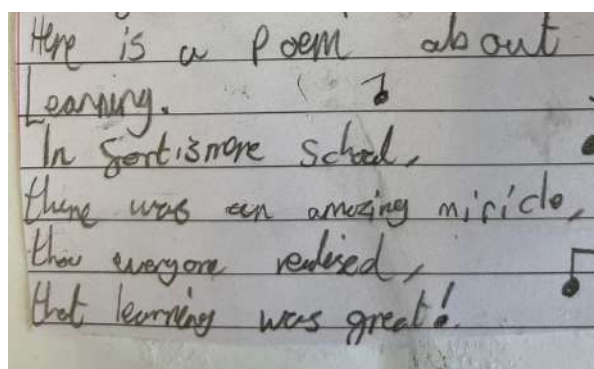 Here is a Poem about
Learning.
In fortismere School,
there was an amazing miricle,
that everyone realised,
that learning was great!